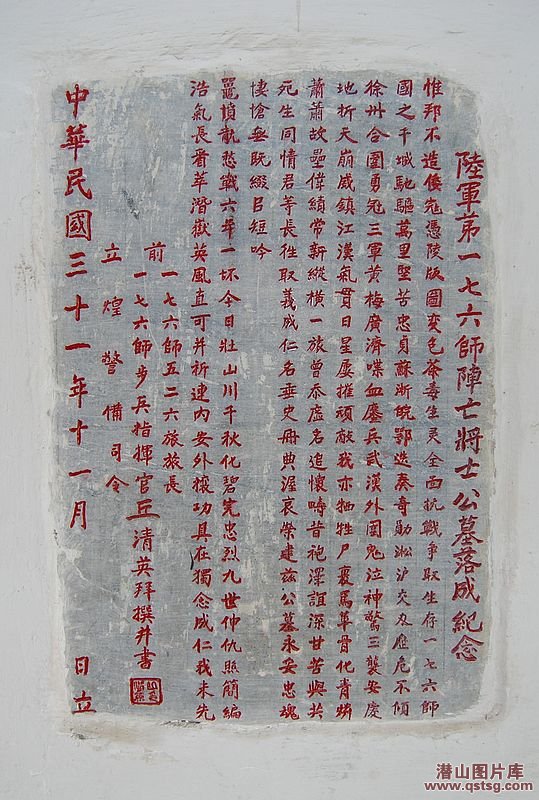 陸軍第一七六師陣亡將士公墓落成紀念
惟邦不造倭寇憑陵版圖變色荼毒生灵全面抗戰爭取生存一七六師
國之干城馳驅萬里堅苦忠貞蘇浙皖鄂迭奏奇勛淞沪交友歷危不傾
徐州合圍勇冠三軍黃梅廣濟喋血鏖兵武漢外圍鬼泣神驚三襲安慶
地折天崩威鎮江漢氣貫日星屢摧頑敵我亦牺牲尸裹馬革骨化青燐
蕭蕭故壘偉績常新縱橫一旅曾忝虛名追懷疇昔袍澤誼深甘苦與共
死生同情君等長徃取義成仁名垂史冊典渥哀榮建兹公墓永安忠魂
悽愴無既綴以短吟
鼍憤鼽愁戰六年一抔今日壮山川千秋化碧完忠烈九世仲仇照簡編
浩氣長賫萃潛嶽英風直可并祈連内安外攘功具在獨念成仁我未先
前一七六師五二六旅旅長
一七六師步兵指揮官丘清英拜撰并書
立煌警備司令
中華民國三十一年十一月 日立
潜山图片库
www.qstsg.com